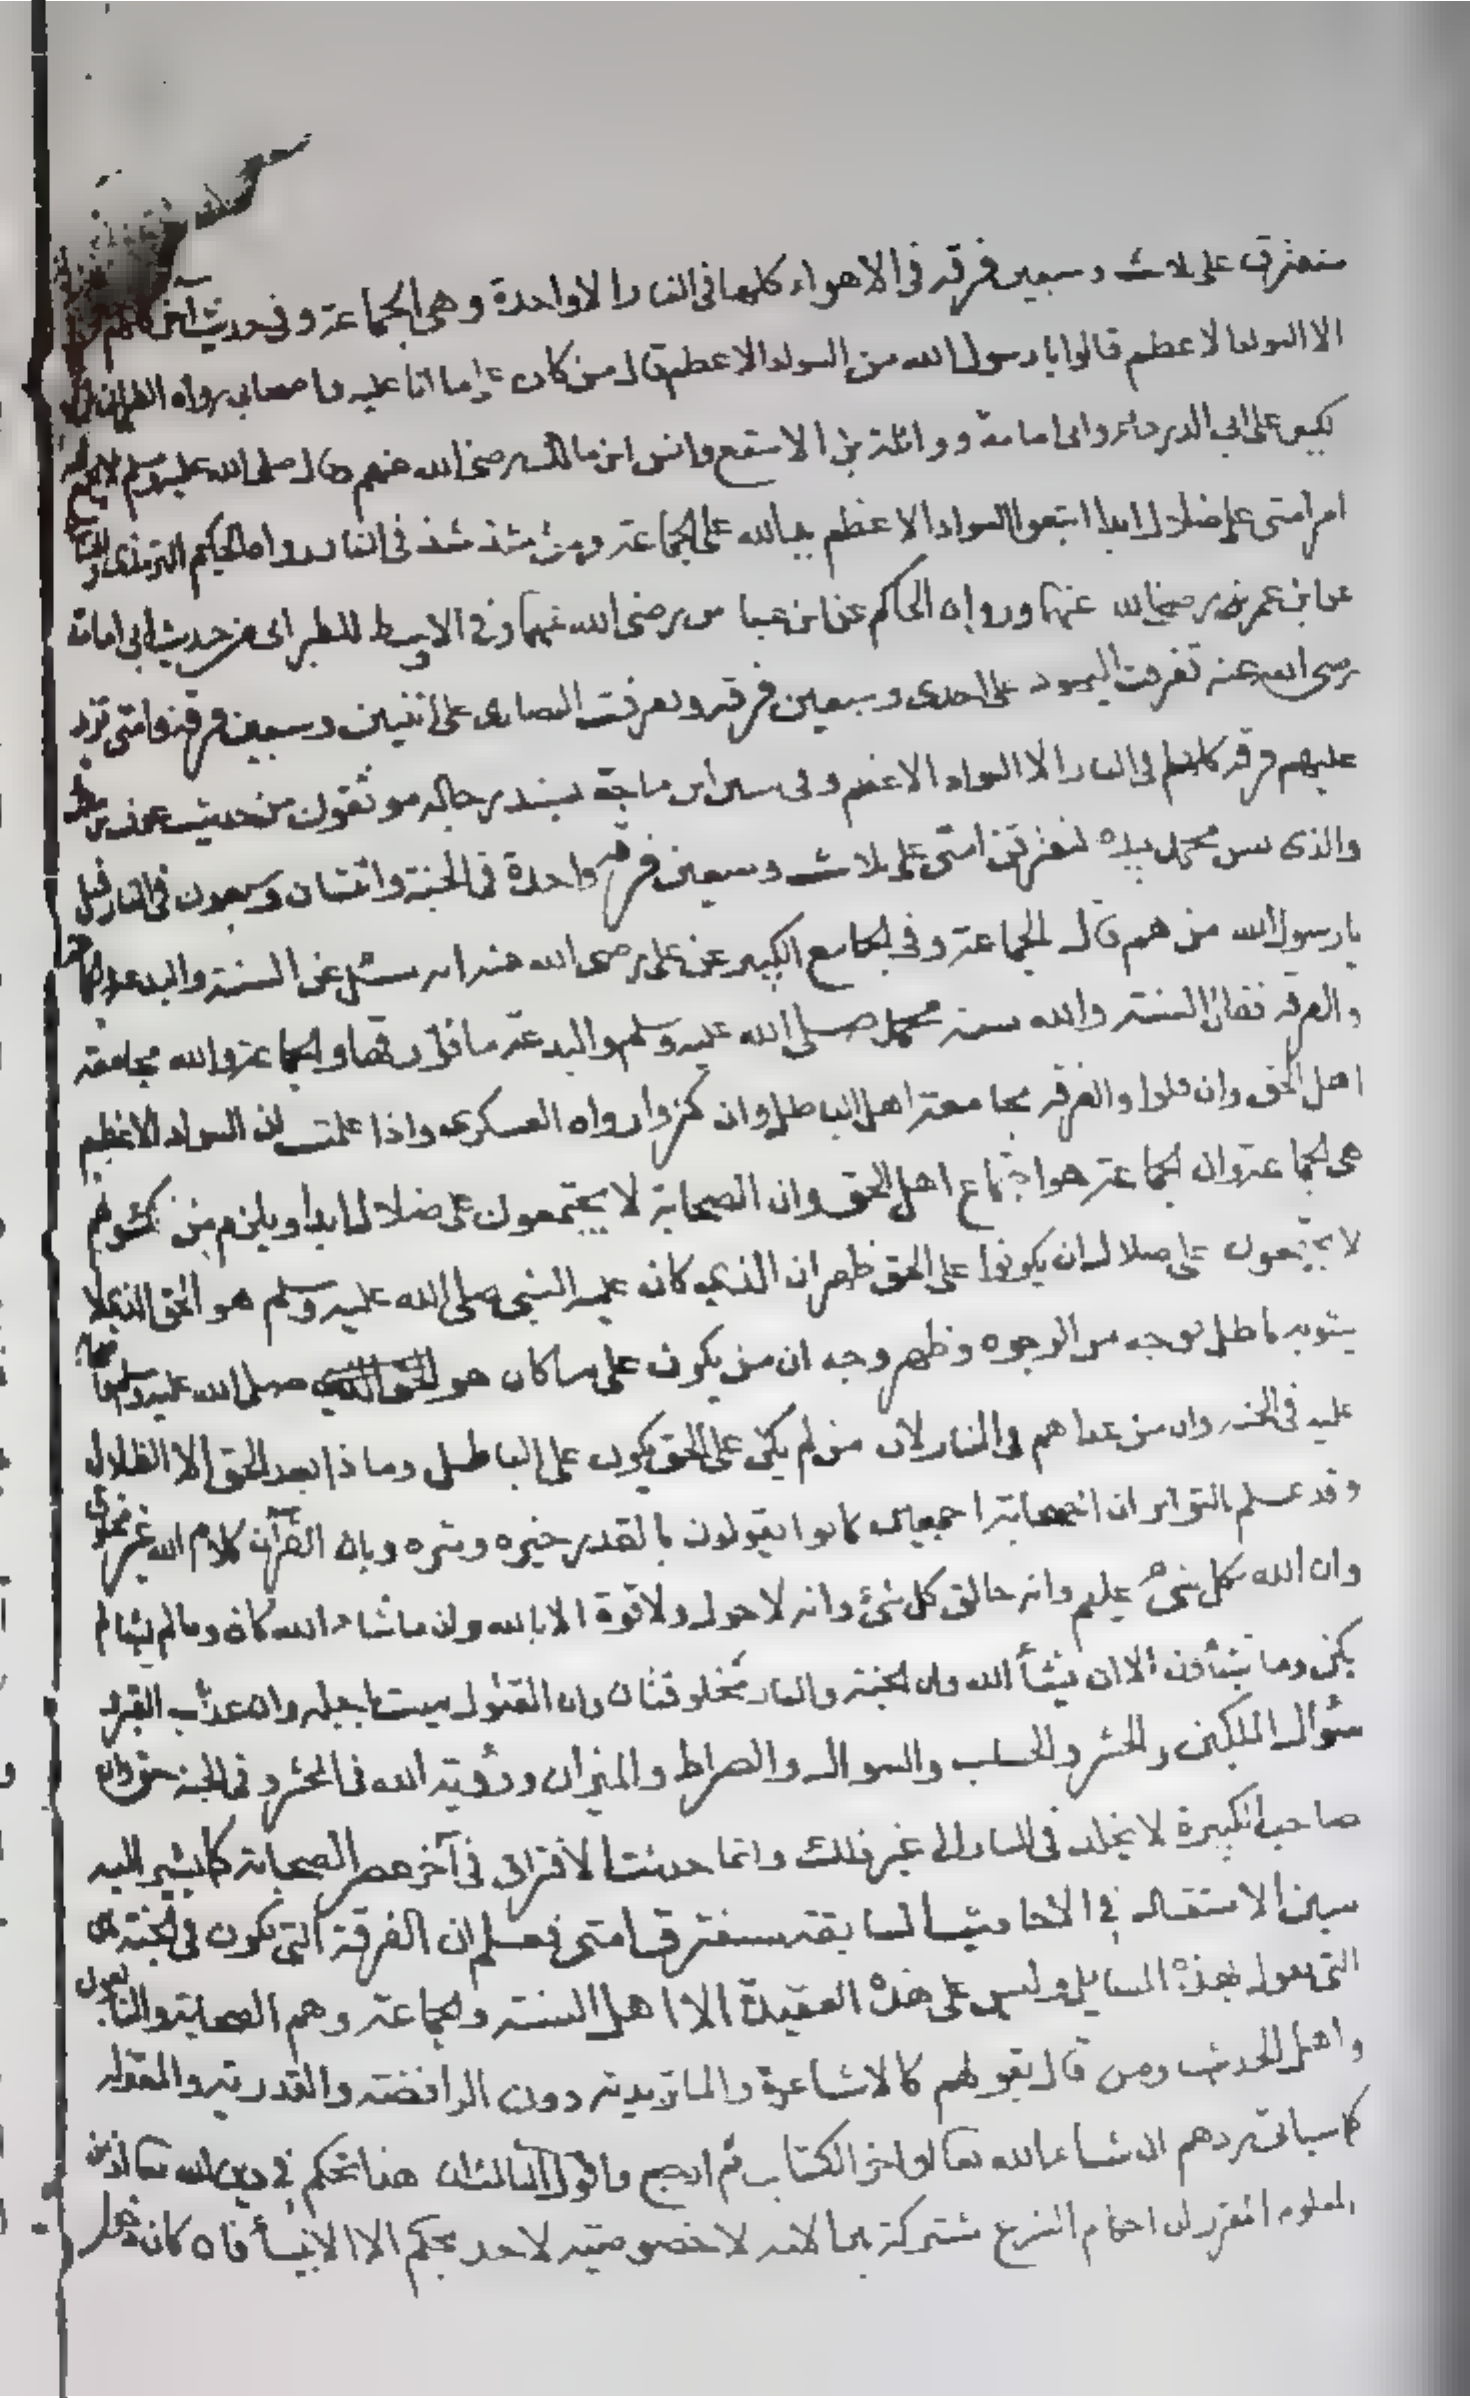 ستفترق على ثلاث وسبعين فرقة فى الاهواء كلها فى النار الا واحدة وهى الجماعة وفى حديث آخر كلهم فى
الا السواد الاعظم قالوا يا رسول الله من السواد الاعظم قال من كان على ما انا عليه واصحابى رواه الطبرانى
كبير على ابى الدرداء وابى امامة وواثلة بن الاسقع وانس ابن مالك رضى الله عنهم وقال صلى الله عليه وسلم لا يجمع
امر امتى على ضلال ابدا اتبعوا السواد الاعظم يد الله على الجماعة ومن شذ شذ فى النار رواه الحكيم الترمذى
عن ابن عمر رضى الله عنهما ورواه الحاكم عن ابن عباس رضى الله عنهما وفى الاوسط للطبرانى من حديث ابى امامة
رضى الله عنه تفرقت اليهود على احدى وسبعين فرقة وتفرقت النصارى على اثنين وسبعين فرقة وامتى تزيد
عليهم فرقة كلها فى النار الا السواد الاعظم وفى سنن ابن ماجة بسند رجاله موثقون من حديث عوف بن
والذى نفس محمد بيده لتفترقن امتى على ثلاث وسبعين فرقة واحدة فى الجنة واثنتان وسبعون فى النار قيل
يا رسول الله من هم قال الجماعة وفى الجامع الكبير عن على رضى الله عنه انه سئل عن السنة والبدعة والجماعة
والفرقة فقال السنة والله سنة محمد صلى الله عليه وسلم والبدعة ما فارقها والجماعة والله مجامعة
اهل الحق وان قلوا والفرقة مجامعة اهل الباطل وان كثروا رواه العسكرى واذا علمت ان السواد الاعظم
هى الجماعة وان الجماعة هو اجتماع اهل الحق وان الصحابة لا يجتمعون على ضلال ابدا ويلزم من كونهم
لا يجتمعون على ضلال ان يكونوا على الحق ظهر ان الذى كان عليه النبى صلى الله عليه وسلم هو الحق الذى لا
يشوبه باطل بوجه من الوجوه وظهر وجه ان من يكون على ما كان هو صلى الله عليه وسلم
عليه فى الجنة وان من عداهم فى النار لان من لم يكن على الحق يكون على الباطل وما ذا بعد الحق الا الظلال
وقد علم بالتواتر ان الصحابة اجمعين كانوا يقولون بالقدر خيره وشره وبان القرآن كلام الله غير مخلوق
وان الله بكل شىء عليم وانه خالق كل شئ وانه لا حول ولا قوة الا بالله وان ما شاء الله كان وما لم يشا لم
يكن وما تشأون الا ان يشأ الله وان الجنة والنار مخلوقتان وان المقتول ميت باجله وان عذاب القبر و
سئوال الملكين والحشر والحساب والسوال والصراط والميزان ورؤية الله فى المحشر وفى الجنة حق وان
صاحب الكبيرة لا يخلد فى النار الى غير ذلك وانما حدثت الافتراق فى آخر عصر الصحابة كما يشير اليه
سين الاستقبال فى الاحاديث السابقة ستفترق امتى فعلم ان الفرقة التى تكون فى الجنة هى
التى تقول بهذه المسايل وليس على هذه العقيدة الا اهل السنة والجماعة وهم الصحابة والتابعون
واهل الحديث ومن قال بقولهم كالاشاعرة والماتريدية دون الرافضة والقدرية والمعتزلة
كما سياتى ردهم ان شاء الله تعالى اواخر الكتاب ثم ارجع واقول الثالث ان هذا تحكم فى دين الله تعالى اذ من
المعلوم المقرر ان احكام الشرع مشتركة بين الامة لا خصوصية لاحد بحكم الا الانبيأ فاه كانه